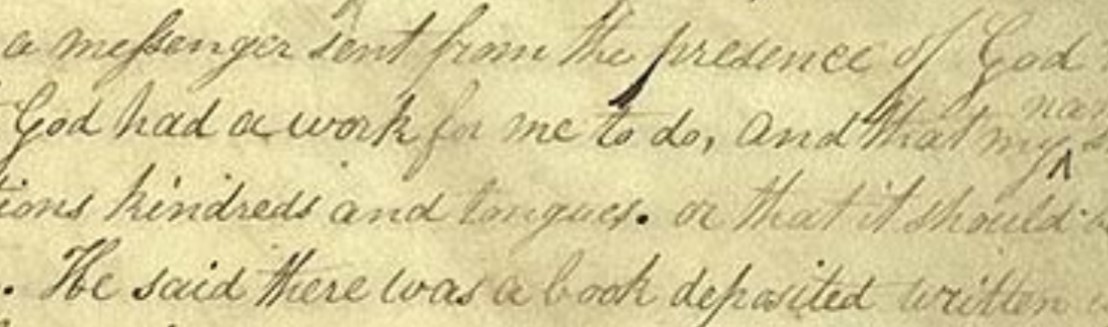 a messenger sent from the presence of God
God had a work for me to do, and that my
kindreds and tongues. or that it should
. He said there was a book deposited written